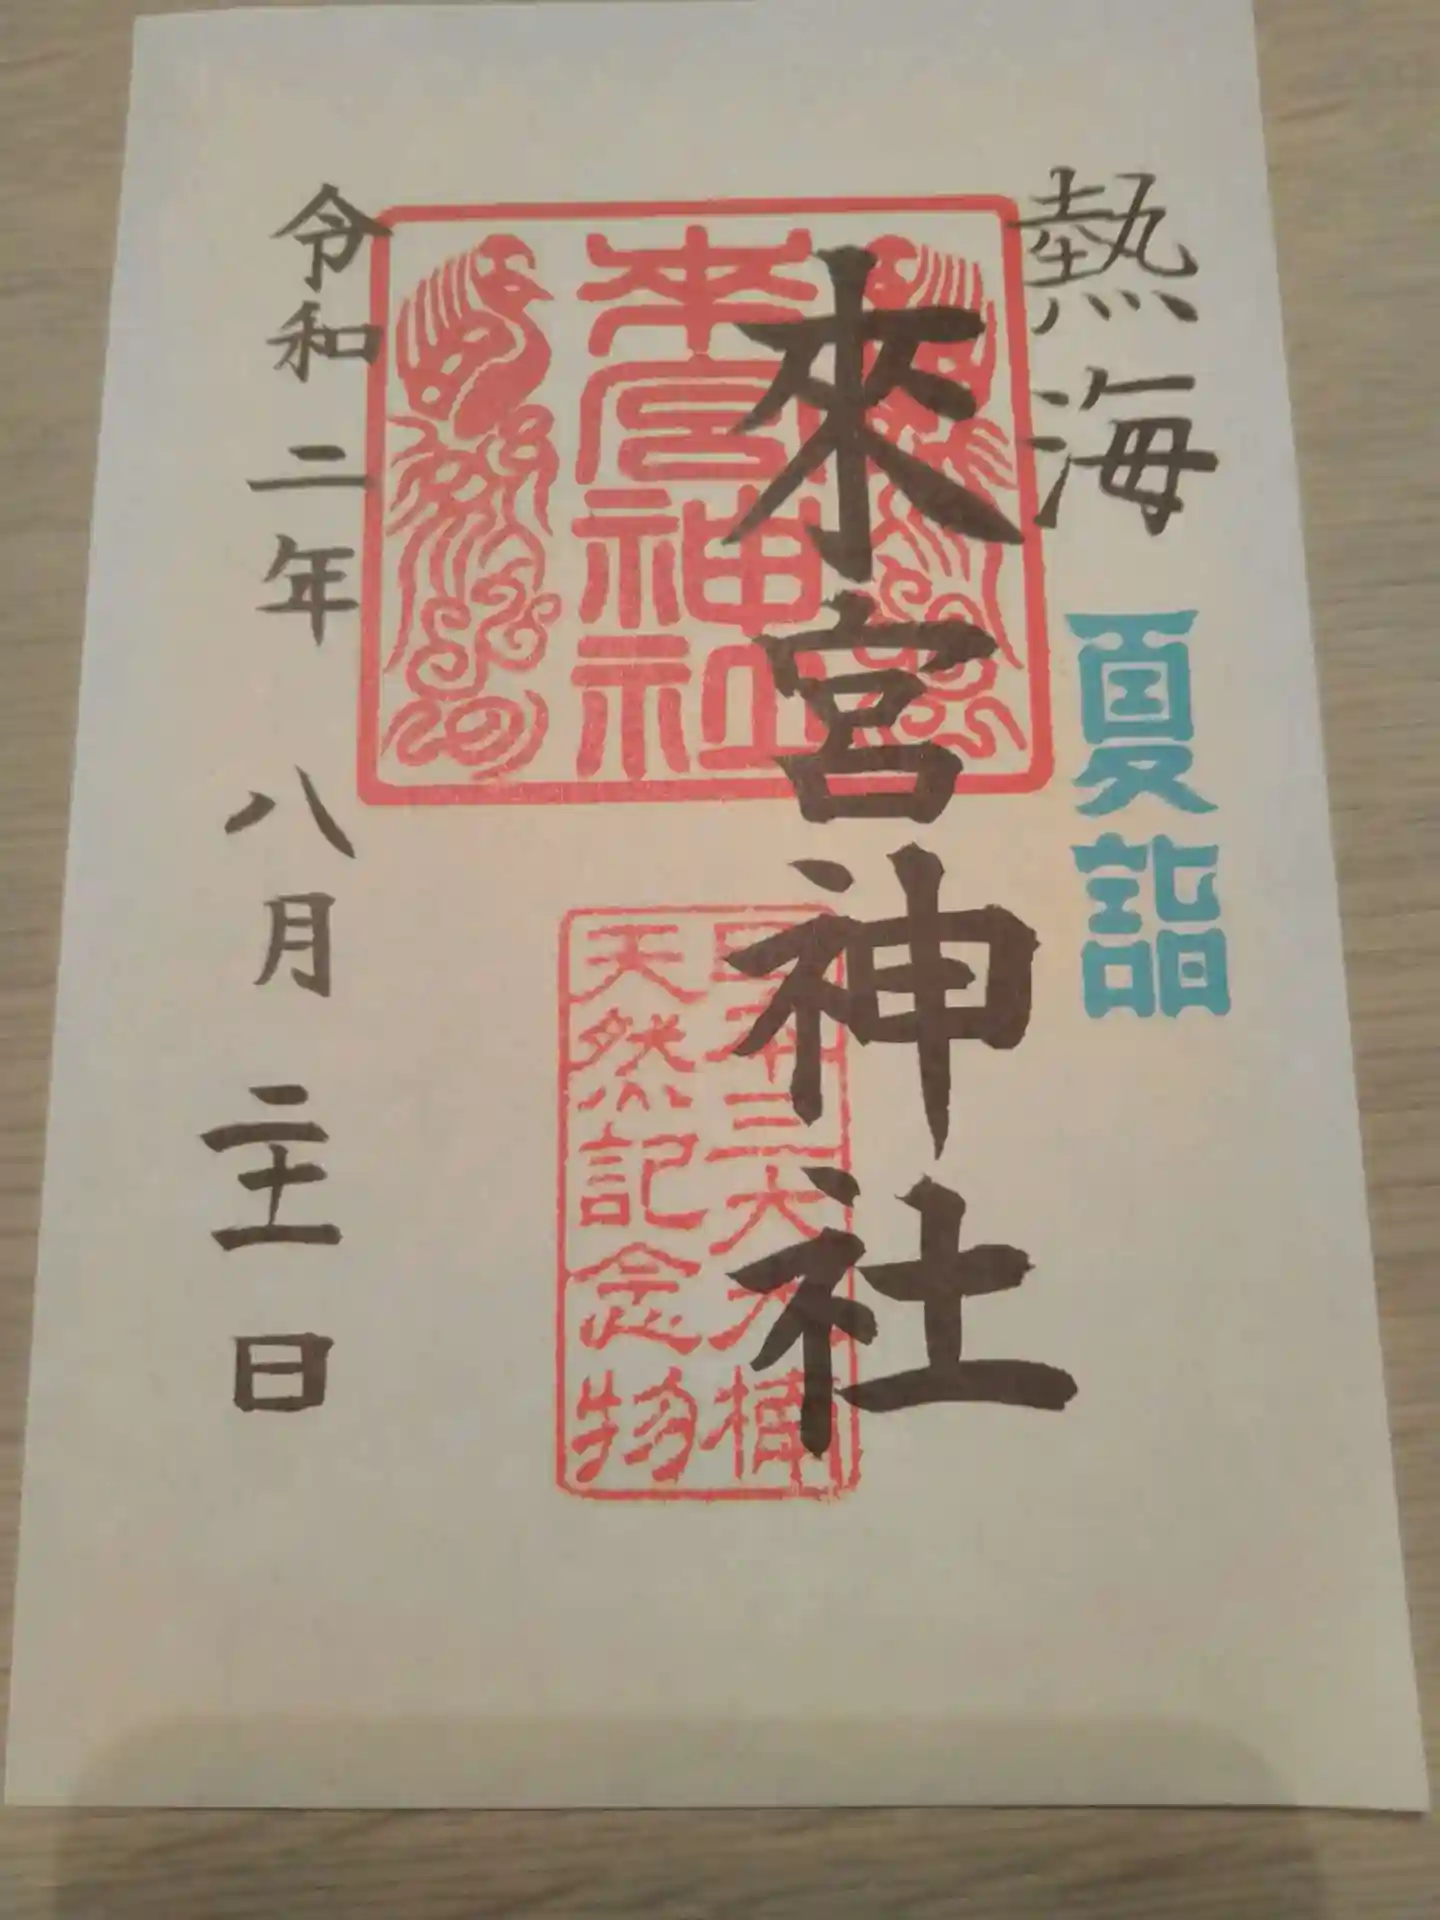 熱海
夏詣
來宮神社
来宮神社
日本三大大楠
天然記念物
令和二年八月二十一日